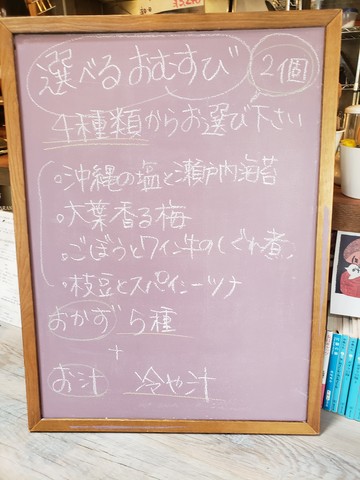 選べるおむすび 2個
4種類からお選び下さい
・沖縄の塩と瀬戸内海苔
・大葉香る梅
・ごぼうとワイン牛のしぐれ煮
・枝豆とスパイシーツナ
おかず 5種
+
お汁 冷や汁